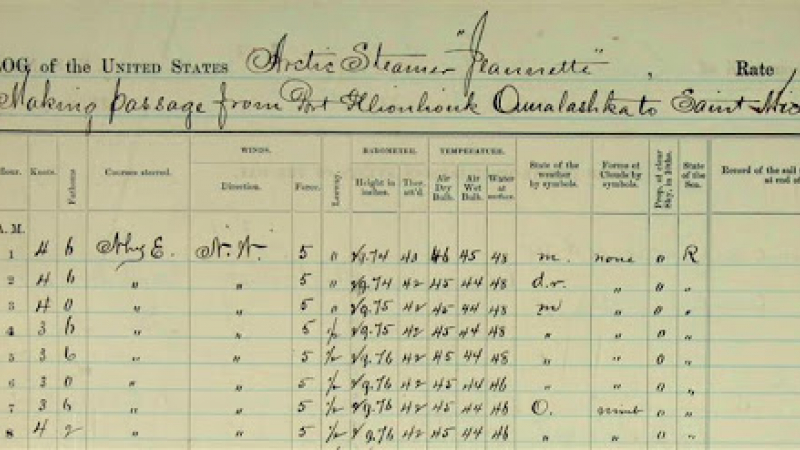 LOG of the UNITED STATES Arctic Steamer "Jeannette", Rate
Making passage from Port Illiouliouk Ounalashka to Saint Mic
Hour. Knots. Fathoms Courses steered. WINDS. Direction. Force. Leeway. BAROMETER. Height in inches. Ther. att'd. TEMPERATURE. Air Dry Bulb. Air Wet Bulb. Water at surface. State of the weather by symbols. Forms of Clouds by symbols. Prop. of clear Sky, in 10ths. State of the Sea. Record of the sail at end of
A. M.
1 4 6 N by E. N. W. 5 " 29.74 43 46 45 48 m. none 0 R
2 4 6 " " 5 " 29.74 42 45 44 48 d.r. " 0 "
3 4 0 " " 5 " 29.75 42 45 44 48 m " 0 "
4 3 6 " " 5 1/2 29.75 42 45 44 48 " " 0 "
5 3 6 " " 5 1/2 29.76 42 45 44 48 " " 0 "
6 3 0 " " 5 1/2 29.76 42 45 44 46 " " 0 "
7 3 6 " " 5 1/2 29.76 42 45 44 46 O. nimb 0 "
8 4 2 " " 5 1/2 29.76 42 45 44 46 " " 0 "